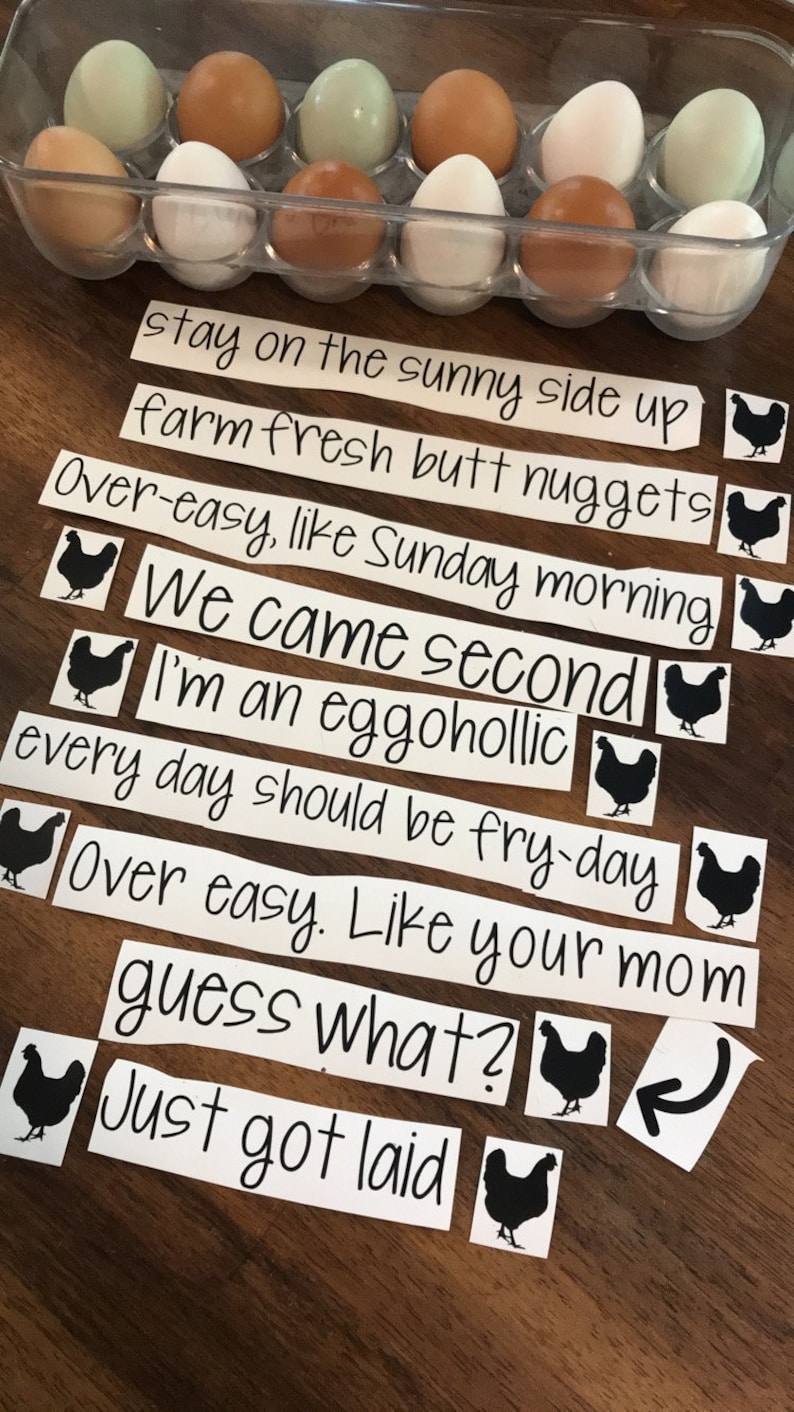 stay on the sunny side up
farm fresh butt nuggets
Over-easy, like Sunday morning
We came second
I'm an eggohollic
every day should be fry-day
Over easy. Like your mom
guess what?
Just got laid